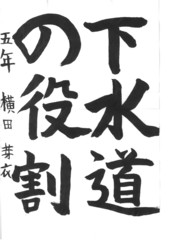 下水道
の役割
五年 横田芽衣